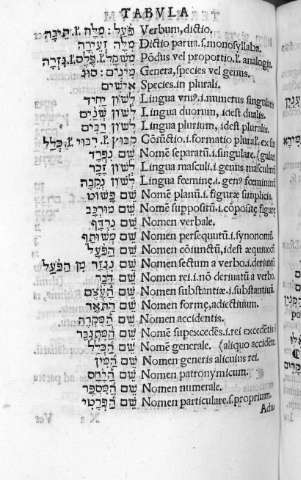 TABVLA
פֹּעַל: מִלָּה .ł. תֵּיבָה Verbum, dictio.
מִלָּה זְעֵירָה Dictio parua.f. monosyllaba.
מִשְׁקָל .ł. פֶּלֶס .ł. גִּזְרָה Põdus vel proportio .ł. analogia
מִינִים: סוּג Genera, species vel genus.
אִישִׁים Species, in plurali.
לְשׁוֹן יָחִיד Lingua vni⁹ .i. numerus singularis
לְשׁוֹן שְׁנַיִם Lingua duorum, idest dualis.
לְשׁוֹן רַבִּים Lingua plurium, idest pluralis.
קִבּוּץ .ł. רִבּוּי .ł. כְּלָל Cõiũctio .i. formatio plural. ex sin
שֵׁם נִפְרָד Nomẽ separatũ .i. singulare.
לְשׁוֹן זָכָר Lingua masculi .i. genus masculi
לְשׁוֹן נְקֵבָה Lingua fœminę .i. genꝰ fœmininũ
שֵׁם פָּשׁוּט Nomẽ planũ .i. figuræ simplicis.
שֵׁם מוּרְכָּב Nomẽ suppositũ .i. cõpositę figurę
Nomen verbale.
שֵׁם נִרְדָּף Nomen persequutũ .i. synonomũ
שֵׁם מְשׁוּתָּף Nomen cõiunctũ, idest æquiuocũ
שֵׁם נִגְזָר מִן הַפֹּעַל Nomen sectum a verbo .i. deriuatũ
שֵׁם דָּבָר Nomen rei .i. nõ deriuatũ a verbo.
שֵׁם הָעֶצֶם Nomen substantiæ .i. substantiuũ
שֵׁם הַתֹּאַר Nomen formę, adiectiuum.
שֵׁם הַמִּקְרֶה Nomen accidentis.
שֵׁם הַמִּתְגַּבֵּר Nomẽ supexcedẽs .i. rei excedẽtis
Nomẽ generale. (aliquo accidẽt
שֵׁם הַמִּין Nomen generis alicuius rei.
שֵׁם הַיַּחַס Nomen patronymicum.
שֵׁם הַמִּסְפָּר Nomen numerale.
שֵׁם הַפְּרָטִי Nomen particulare .f. proprium.